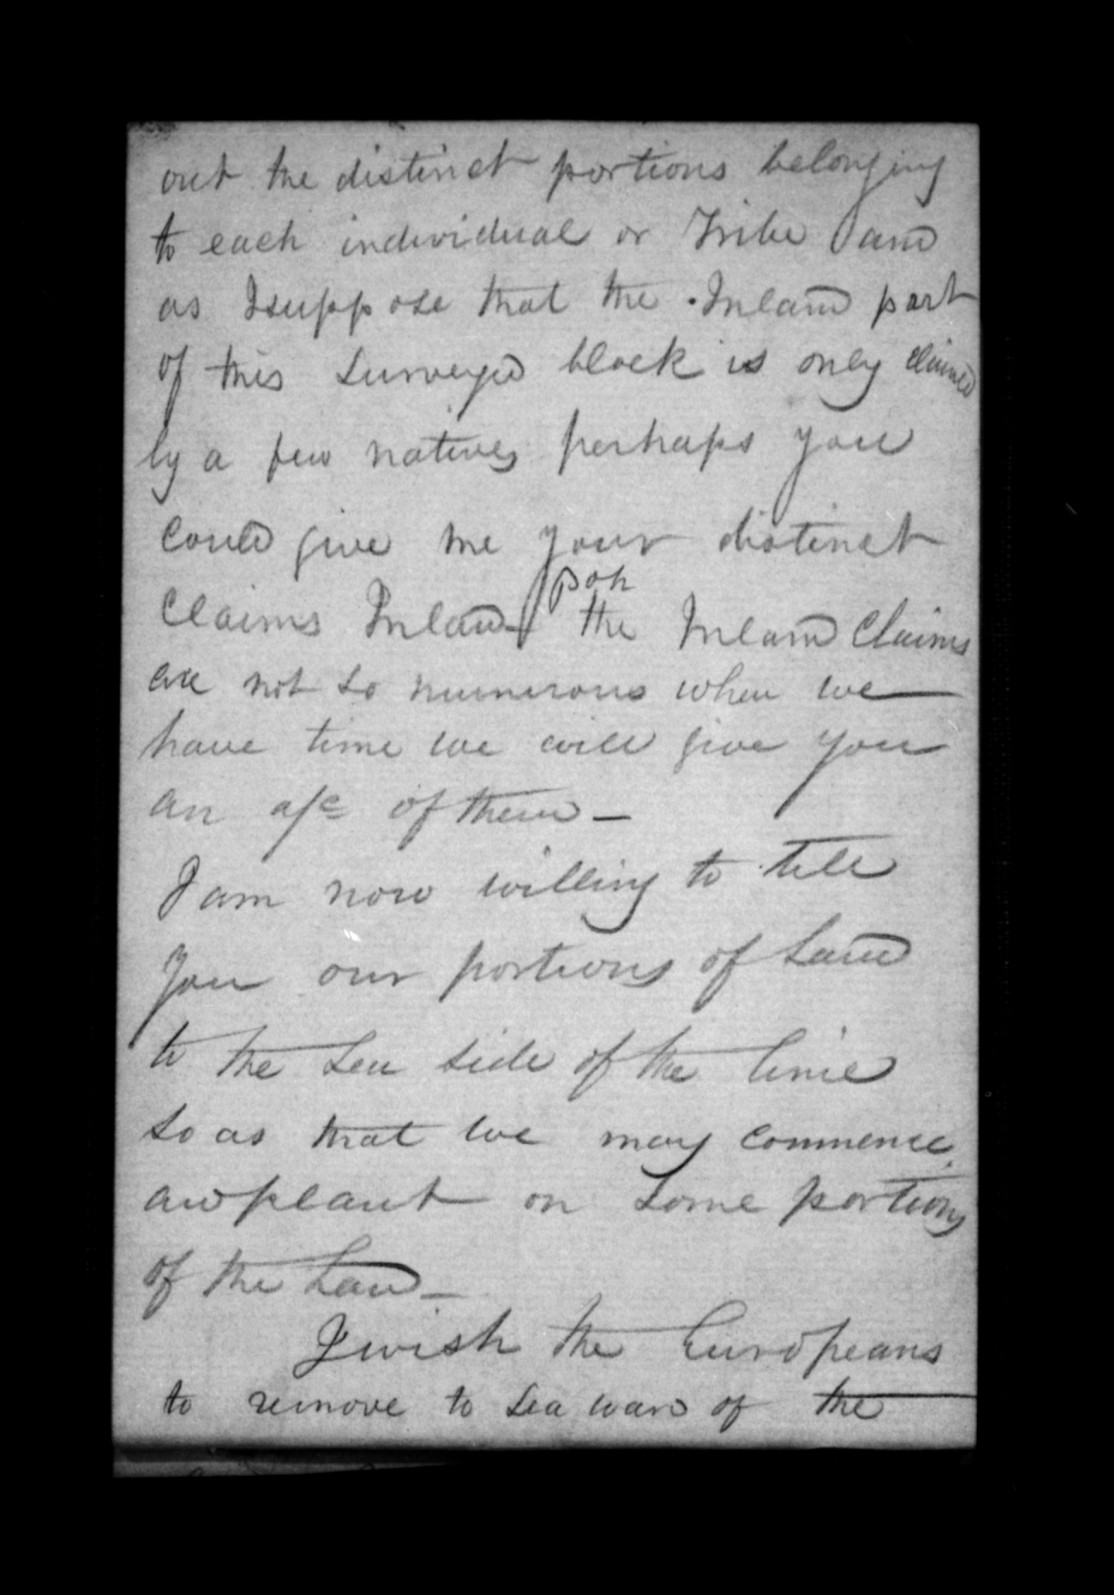 out the distinct portions belonging
to each individual or Tribe and
as I suppose that the Inland part
of this Surveyed block is only claimed
by a few natives perhaps you
could give me your distinct
Claims Inland - Poh the Inland Claims
are not so numerous when we
have time we will give you
an a/c of them -
I am now willing to tell
you our portions of Land
to the Sea side of the line
so as that we may commence
and plant on some portions
of the Land -
I wish the Europeans
to remove to Sea ward of the